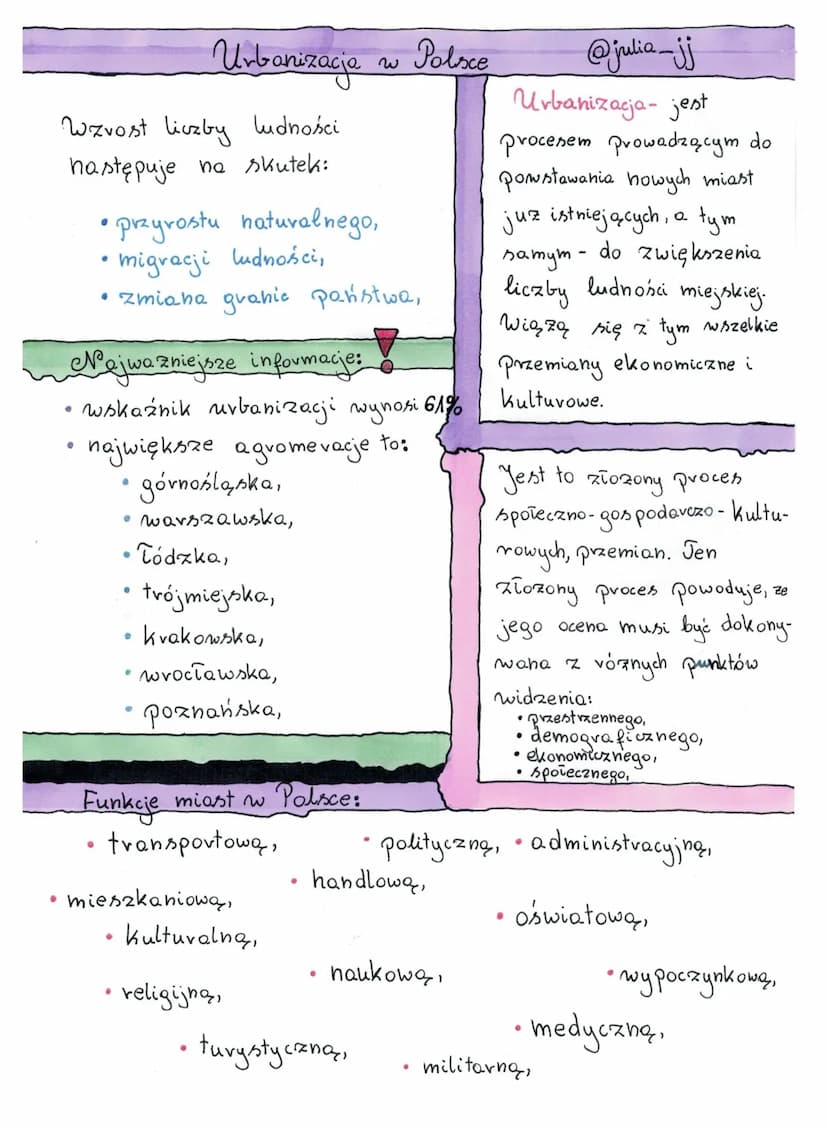 Urbanizacja w Polsce @julia_jj
Wzrost liczby ludności
następuje na skutek:
• przyrostu naturalnego,
• migracji ludności,
• zmiana granic państwa,
Najwazniejsze informacje:
• wskaźnik urbanizacji wynosi 61%
• największe agromevacje to:
• górnośląska,
• warszawska,
• łódzka,
• trójmiejska,
• krakowska,
• wrocławska,
• poznańska,
Urbanizacja- jest
procesem prowadzącym do
powstawania nowych miast
juz istniejących, a tym
samym - do zwiększenia
liczby ludności miejskiej.
Wiążą się z tym wszelkie
przemiany ekonomiczne i
kulturowe.
Jest to złozony proces
społeczno-gospodarczo-kultu-
rowych, przemian. Ten
złozony proces powoduje, ze
jego ocena musi być dokony-
wana z róznych punktów
widzenia:
• przestrzennego,
• demograficznego,
• ekonomicznego,
• społecznego,
Funkcje miast w Polsce:
• transportową,
• polityczną, • administracyjną,
• handlową,
• mieszkaniową,
• oświatową,
• kulturalną,
• naukową,
• wypoczynkową,
• religijną,
• medyczną,
• turystyczną,
• militarną,